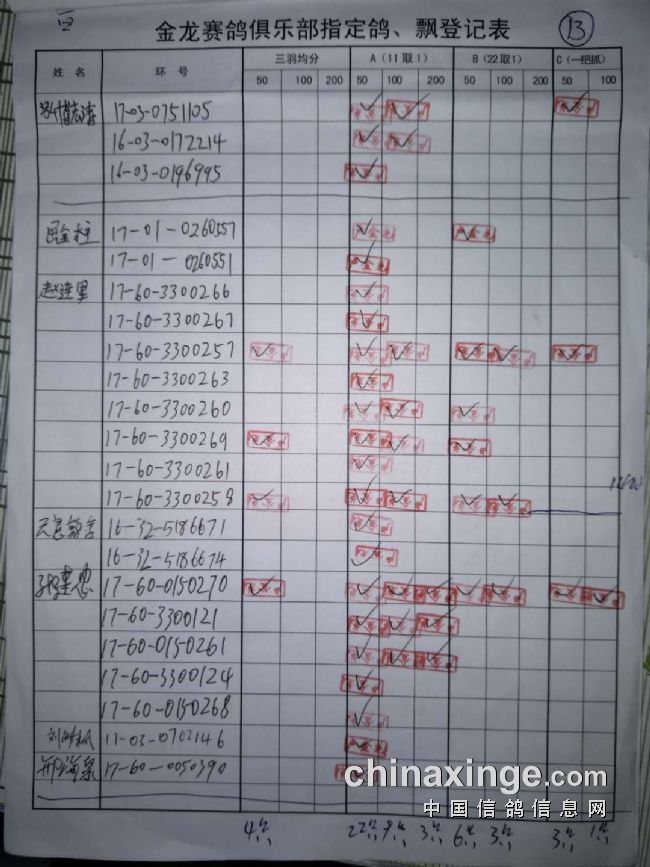 百
金龙赛鸽俱乐部指定鸽、飘登记表
13
姓名 环号 三羽均分 A(11取1) B(22取1) C(一把抓)
50 100 200 50 100 200 50 100 200 50 100
17-03-0751105
16-03-0172214
16-03-0196995
17-01-0260557
17-01-0260551
赵连军 17-60-3300266
17-60-3300267
17-60-3300257
17-60-3300263
17-60-3300260
17-60-3300269
17-60-3300261
17-60-3300258
16-32-5186671
16-32-5186674
17-60-0150270
17-60-3300121
17-60-0150261
17-60-3300124
17-60-0150268
11-03-0702146
17-60-0050390
chinaxinge.com
中国信鸽信息网
4 22 9 3 6 3 3 1